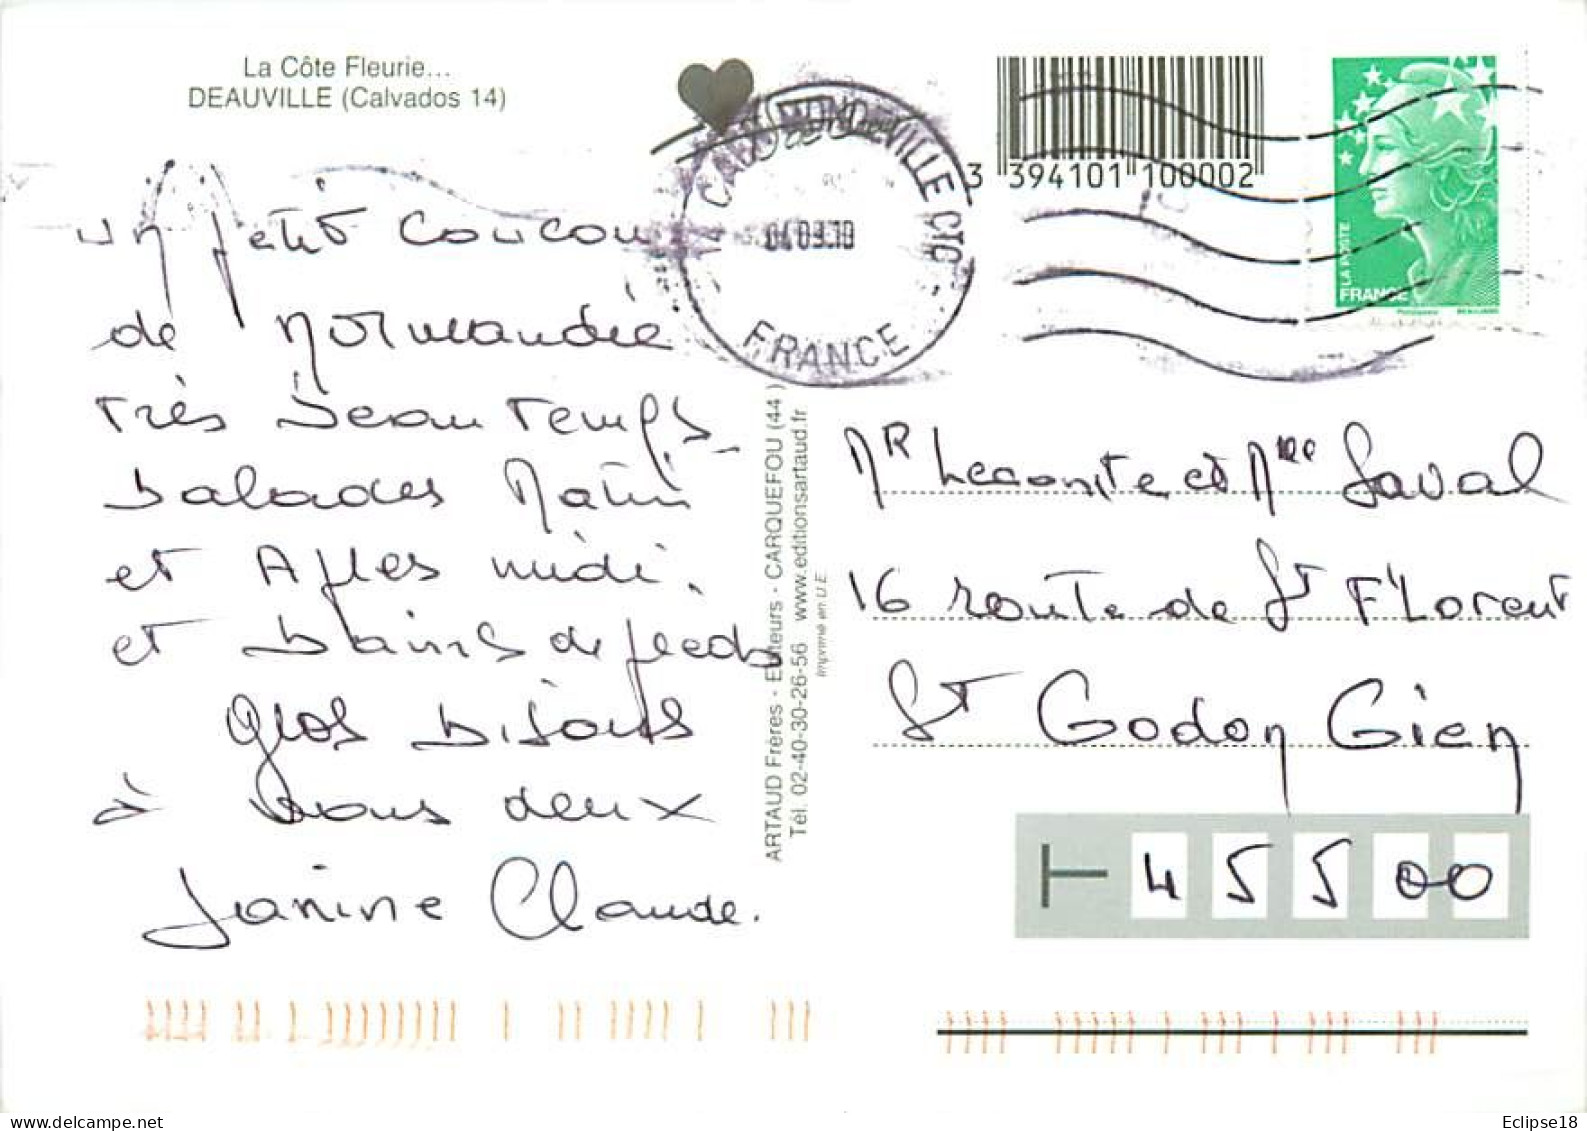 La Côte Fleurie...
DEAUVILLE (Calvados 14)
un petit coucou
de Normandie
très beau temps
balades Matin
et Après midi.
et bains de pieds
gros bisous
à vous deux
Janine Claude.
ARTAUD Frères - Editeurs - CARQUEFOU (44)
Tél. 02-40-30-26-56 www.editionsartaud.fr
Imprimé en U.E.
14 CAEN MONDEVILLE CTC
FRANCE
3 394101 100002
LA POSTE
FRANCE
Mr Lecomte et Mme Laval
16 route de St Florent
St Godon Gien
45500
Eclipse18